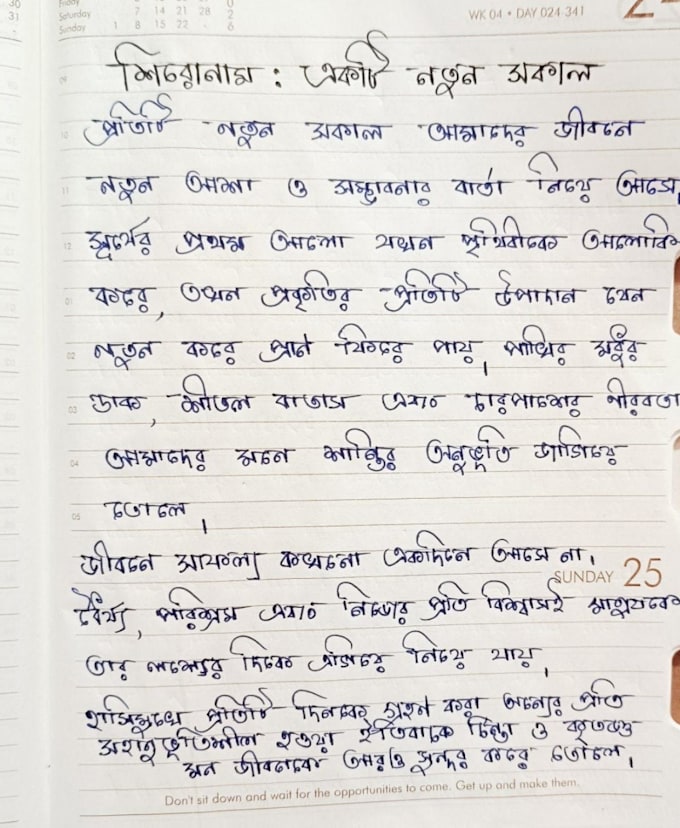 30
31
Friday 6
Saturday 7 14 21 28
Sunday 1 8 15 22
WK 04 • DAY 024-341
শিরোনাম : একটি নতুন সকাল
09
10 প্রতিটি নতুন সকাল আমাদের জীবনে
11 নতুন আশা ও সম্ভাবনার বার্তা নিয়ে আসে।
12 সূর্যের প্রথম আলো যখন পৃথিবীকে
01 করে, তখন প্রকৃতির প্রতিটি উপাদান যেন
02 নতুন করে প্রাণ ফিরে পায়। পাখির মধুর
03 ডাক, শীতল বাতাস এবং চারপাশের নীরবতা
04 আমাদের মনে শান্তির অনুভূতি জাগিয়ে
05 তোলে।
জীবনে সাফল্য কখনো একদিনে আসে না।
SUNDAY 25
ধৈর্য্য, পরিশ্রম এবং নিজের প্রতি বিশ্বাসই মানুষকে
তার লক্ষ্যের দিকে এগিয়ে নিয়ে যায়।
হাসিমুখে প্রতিটি দিনকে গ্রহণ করা অন্যের প্রতি
সহানুভূতিশীল হওয়া ইতিবাচক চিন্তা ও কৃতজ্ঞ
মন জীবনকে আরও সুন্দর করে তোলে।
Don't sit down and wait for the opportunities to come. Get up and make them.